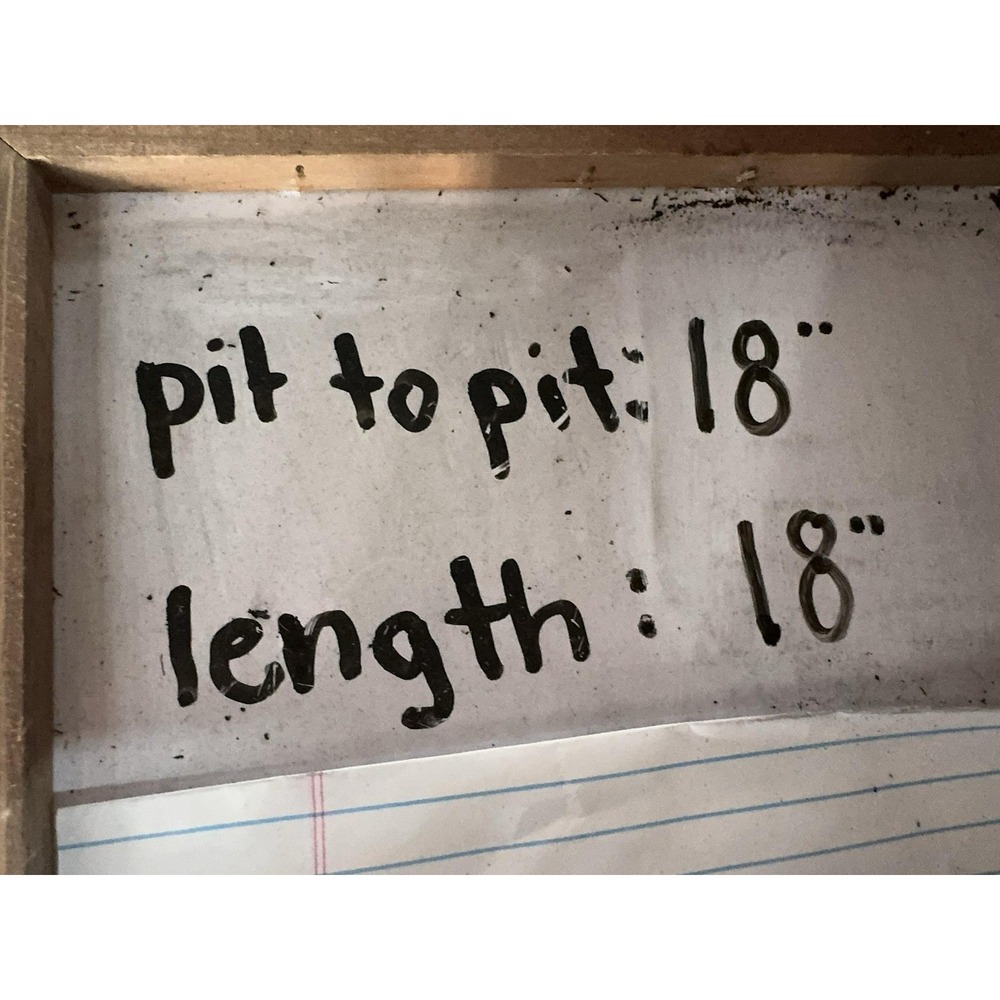 pit to pit: 18"
length: 18"